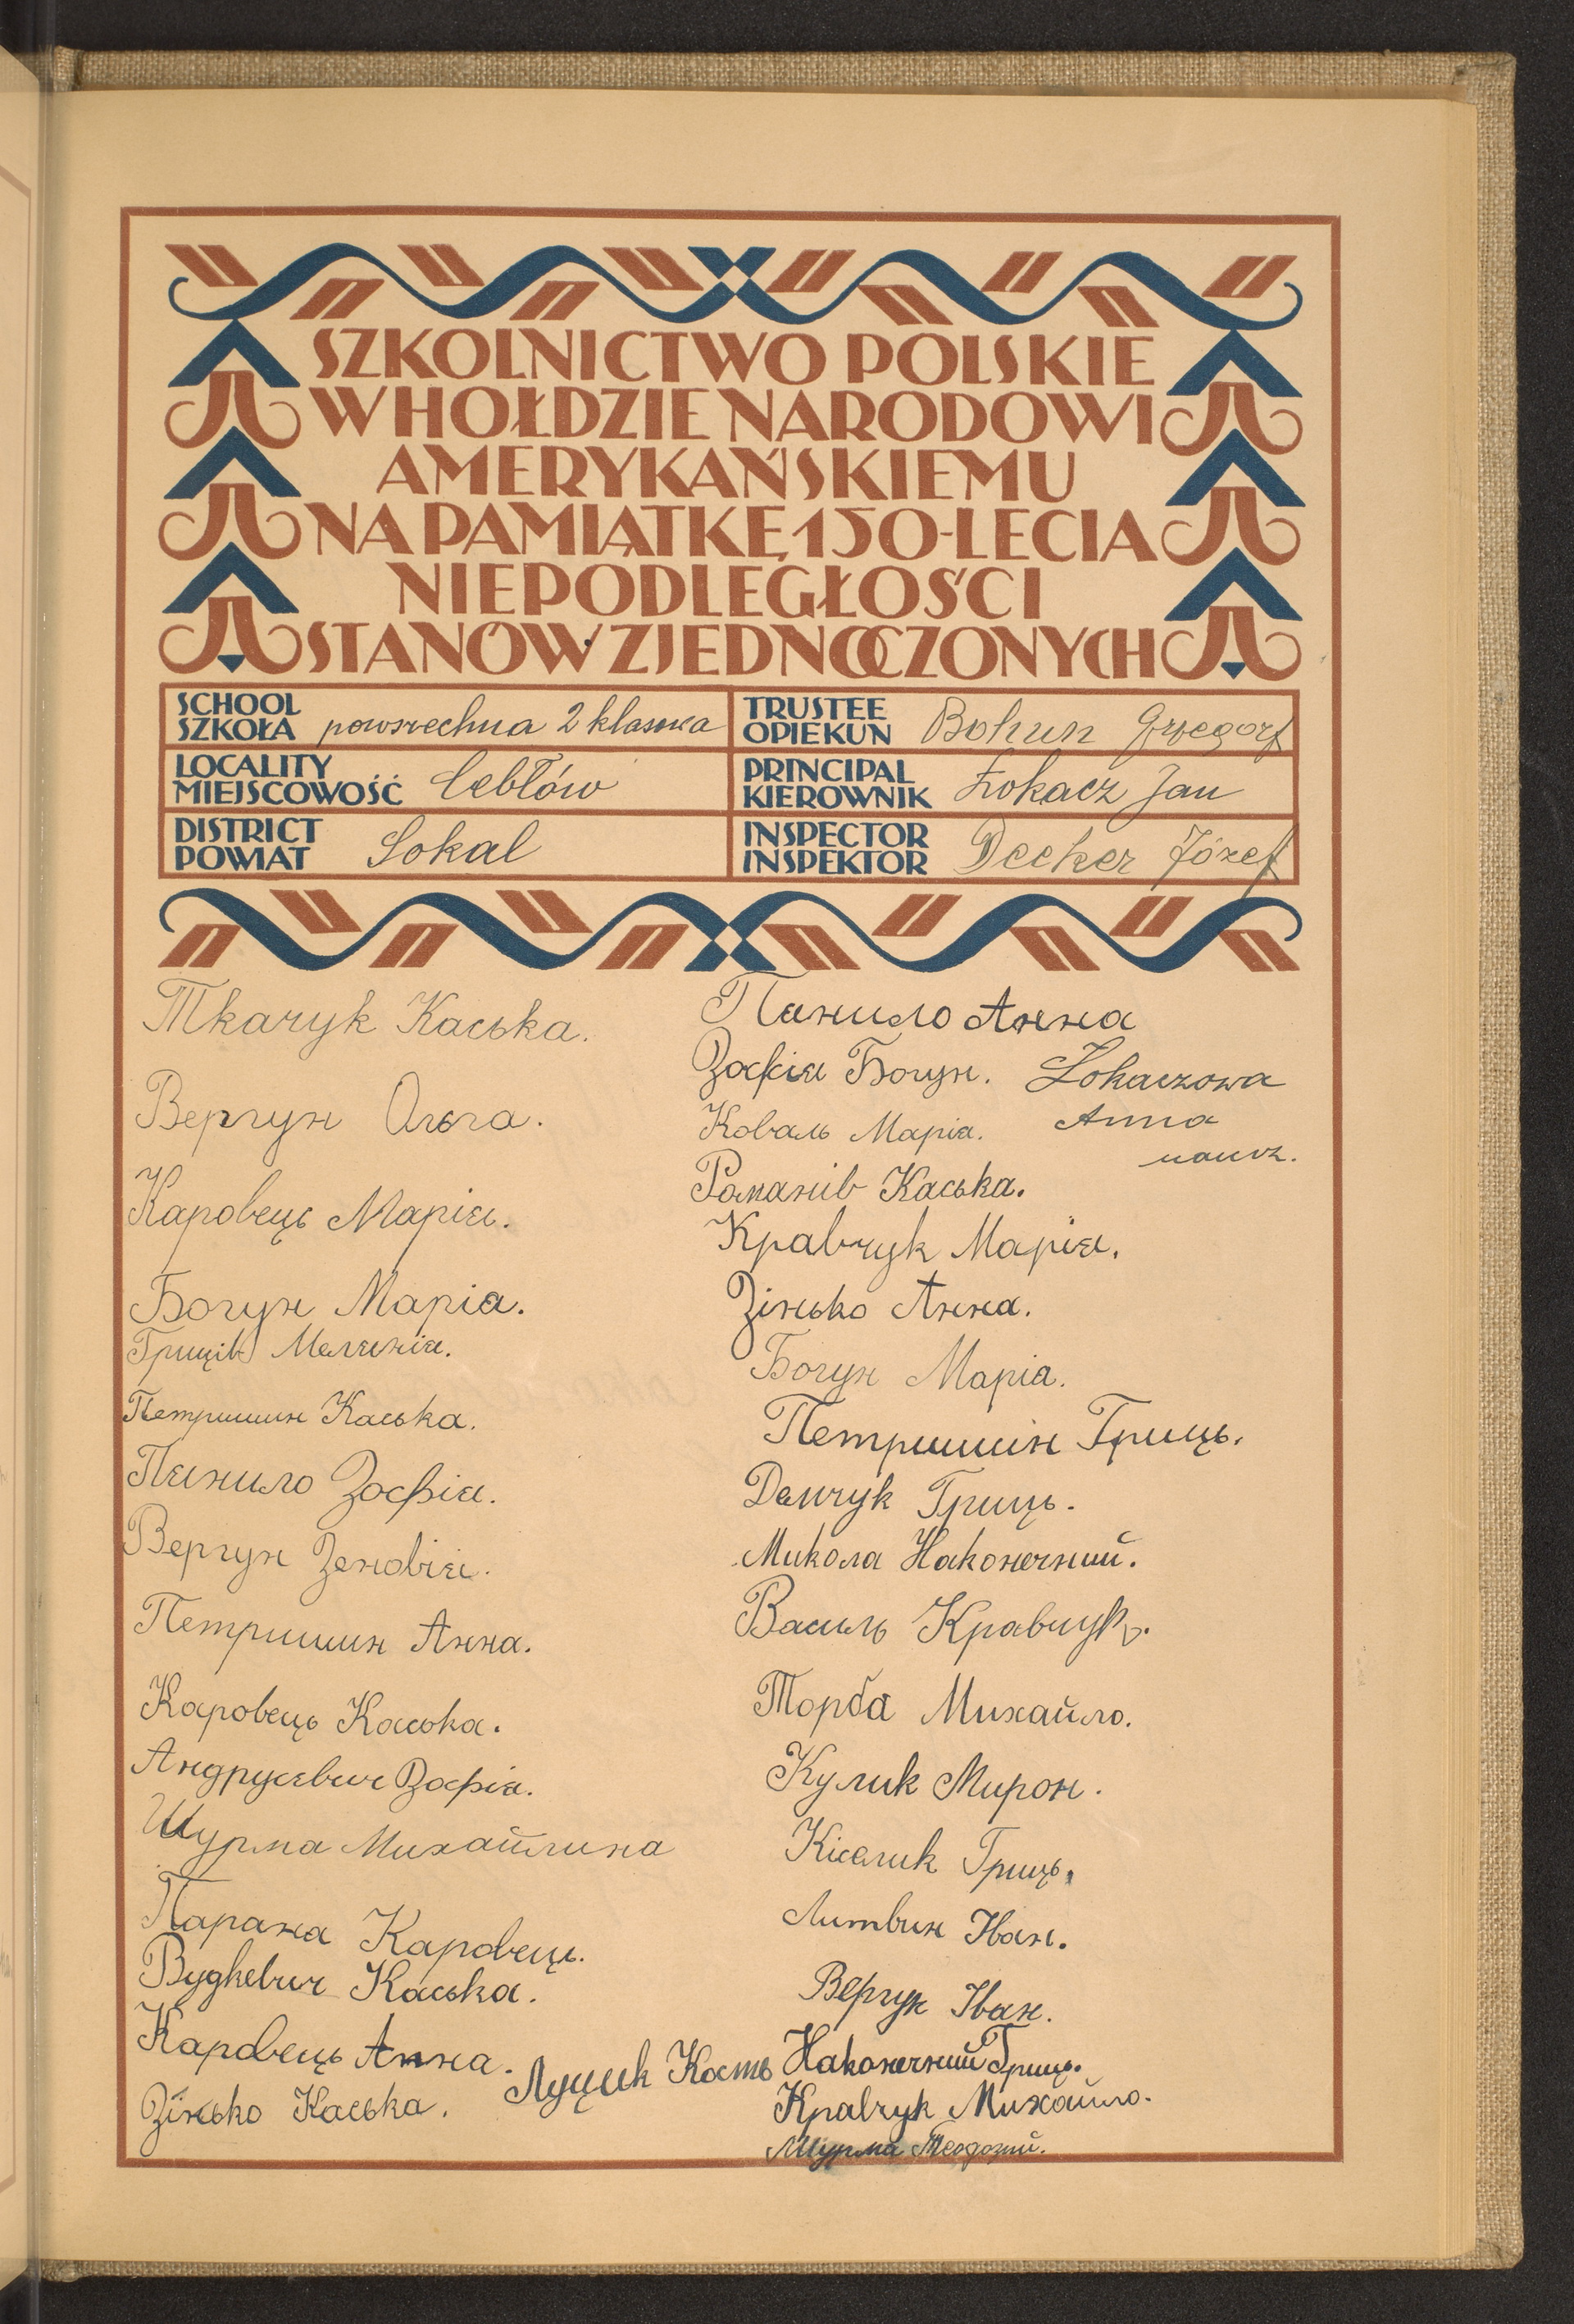 SZKOLNICTWO POLSKIE
W HOŁDZIE NARODOWI
AMERYKAŃSKIEMU
NA PAMIĄTKĘ 150-LECIA
NIEPODLEGŁOŚCI
STANÓW ZJEDNOCZONYCH
SCHOOL
SZKOŁA powszechna 2 klasowa
TRUSTEE
OPIEKUN Bohun Grzegorz
LOCALITY
MIEJSCOWOŚĆ Cebłów
PRINCIPAL
KIEROWNIK Łokacz Jan
DISTRICT
POWIAT Sokal
INSPECTOR
INSPEKTOR Decker Józef
Ткачук Каська.
Вергун Ольга.
Каровець Марія.
Богун Маріа.
Гриців Меланія.
Петришин Каська.
Панило Зофія.
Вергун Зеновія.
Петришин Анна.
Каровець Каська.
Андрусевич Зофія.
Шурма Михайлина
Параня Каровець.
Будкевич Каська.
Каровець Анна.
Зінько Каська.
Луцик Кость
Панило Анна
Зофія Богун.
Łokaczowa
Anna
naucz.
Коваль Марія.
Романів Каська.
Кравчук Марія.
Зінько Анна.
Богун Маріа.
Петришин Гриць.
Демчук Гриць.
Микола Наконечний.
Василь Кравчук.
Торба Михайло.
Кулик Мирон.
Кісілик Гриць.
Литвин Іван.
Вергун Іван.
Наконечний Гриць.
Кравчук Михайло.
Шурма Теодозий.